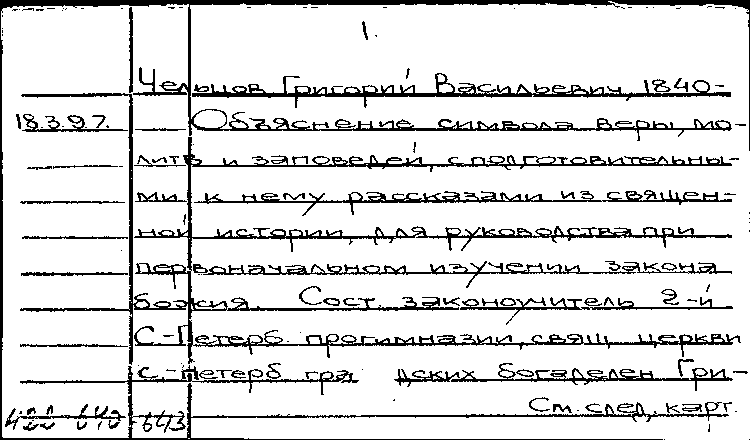 1.
Чельцов, Григорий Васильевич, 1840-
18.3.97. Объяснение символа веры, мо-
литв и заповедей, с подготовительны-
ми к нему рассказами из священ-
ной истории, для руководства при
первоначальном изучении закона
божия. Сост. законоучитель 2-й
С.-Петерб. прогимназии, свящ. церкви
с.-петерб. гра дских богаделен Гри-
См. след. карт.
422 640-643